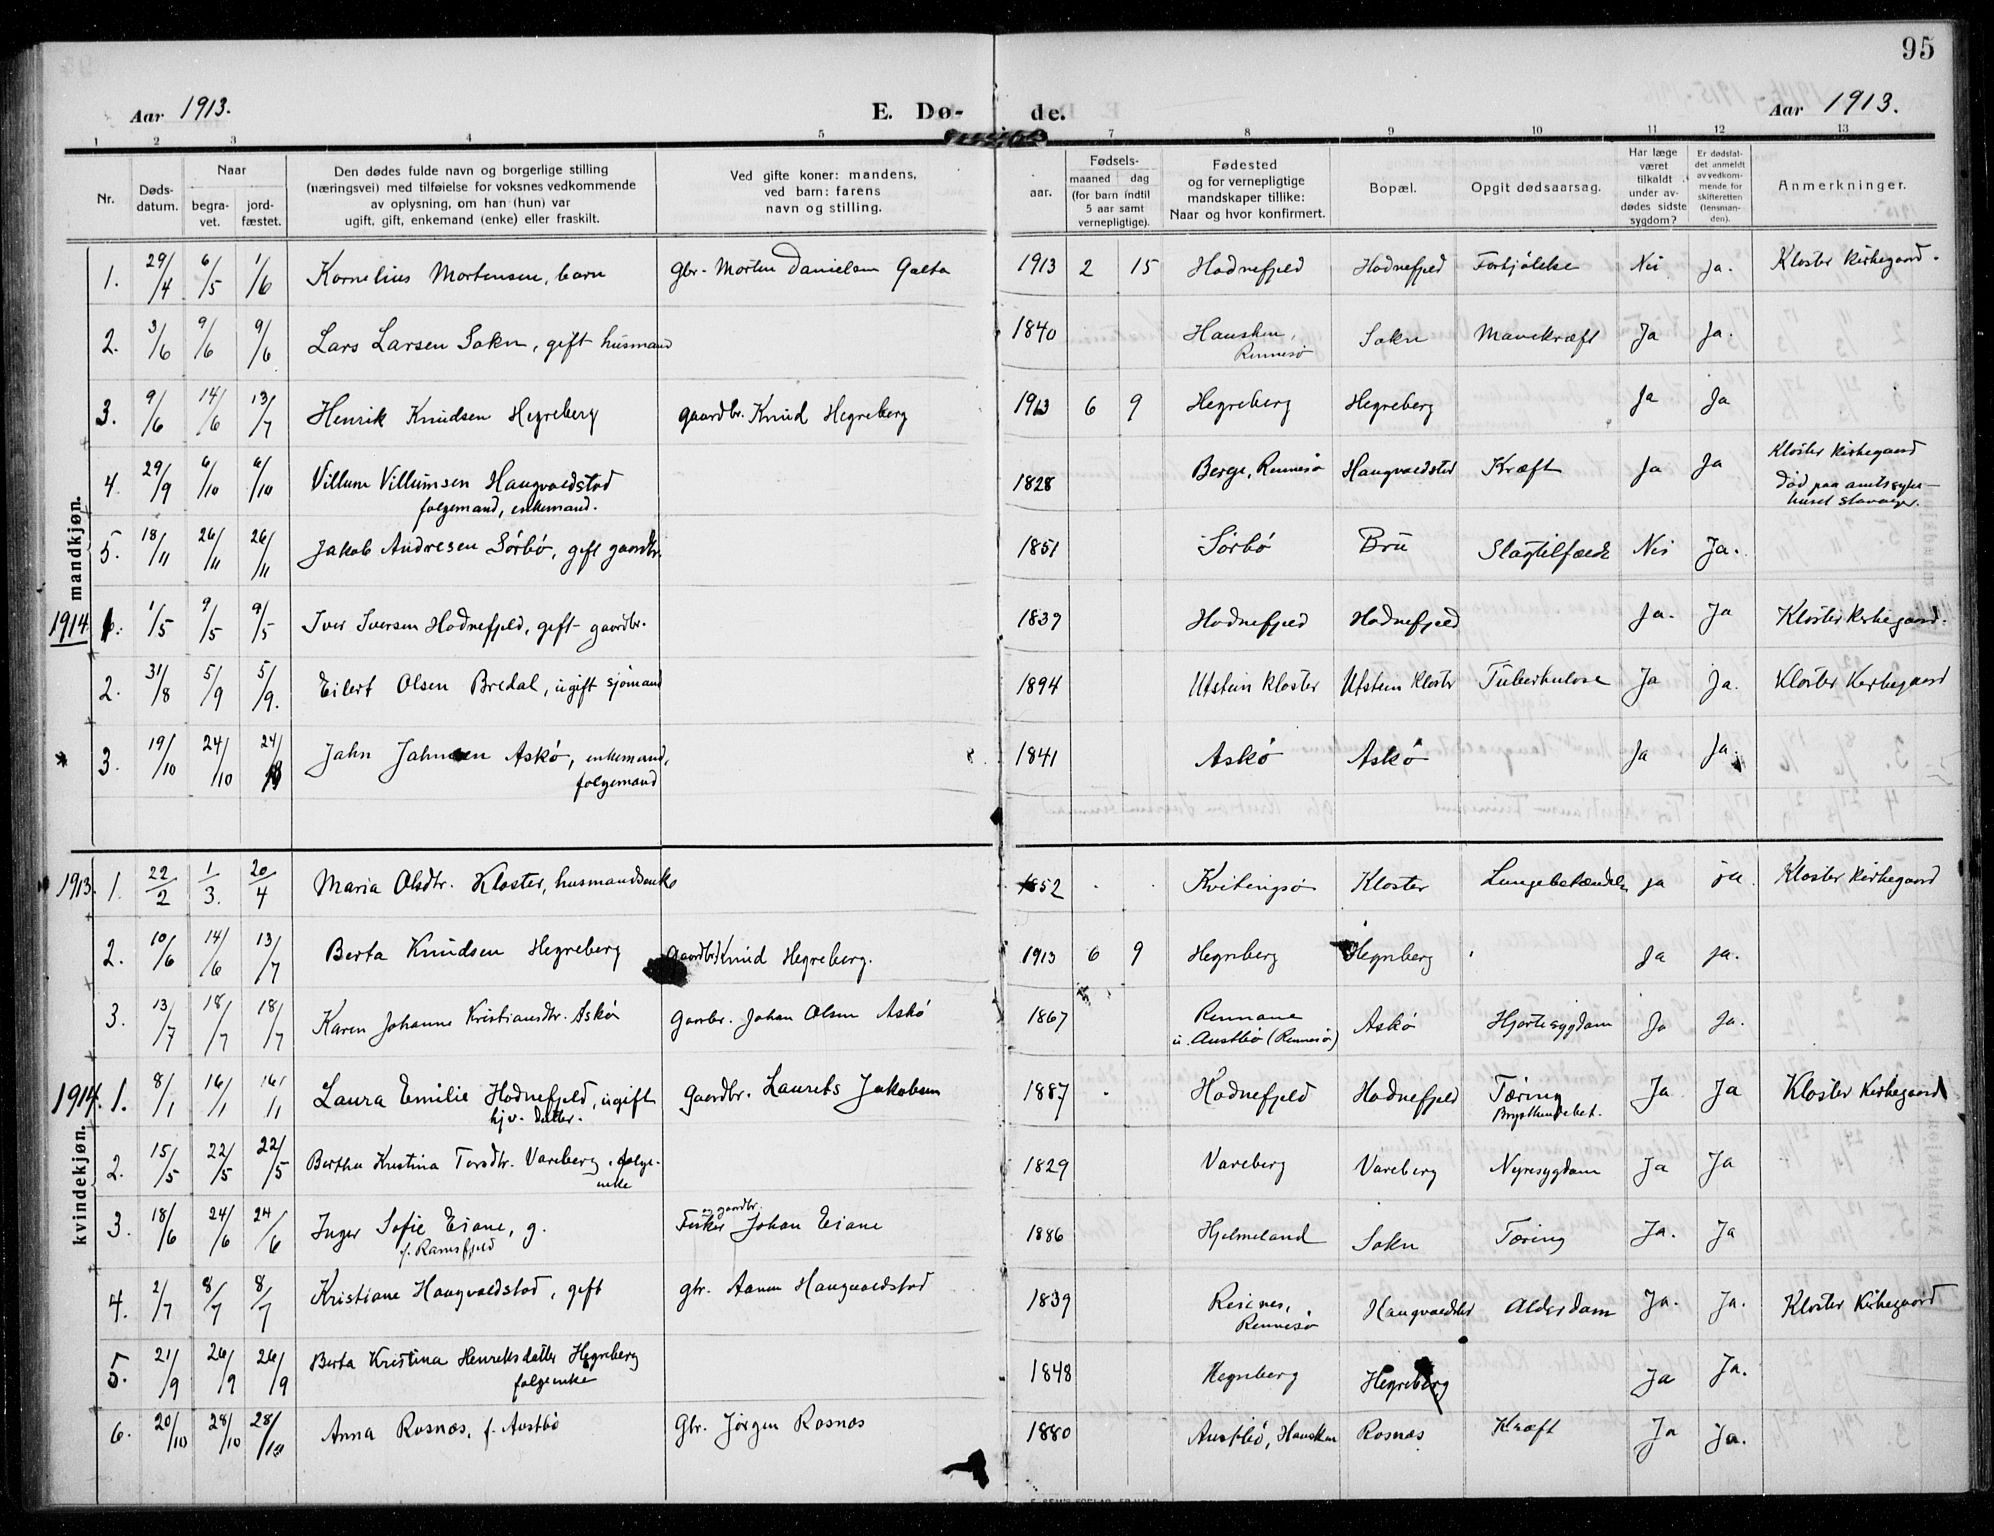 95
Aar 1913. E. Dø- de. Aar 1913.
1 2 3 4 5 7 8 9 10 11 12 13
Nr.
Døds-
datum.
Naar
begra-
vet.
jord-
fæstet.
Den dødes fulde navn og borgerlige stilling
(næringsvei) med tilføielse for voksnes vedkommende
av oplysning, om han (hun) var
ugift, gift, enkemand (enke) eller fraskilt.
Ved gifte koner: mandens,
ved barn: farens
navn og stilling.
aar.
Fødsels-
maaned dag
(for barn indtil
5 aar samt
vernepligtige).
Fødested
og for vernepligtige
mandskaper tillike:
Naar og hvor konfirmert.
Bopæl.
Opgit dødsaarsag.
Har læge
været
tilkaldt
under av-
dødes sidste
sygdom?
Er dødsfal-
det anmeldt
av vedkom-
mende for
skifteretten
(lensman-
den).
Anmerkninger.
mandkjøn.
1. 29/4 6/5 1/6 Kornelius Mortensen, barn Gbr. Morten Danielsen Galta 1913 2 15 Hodnefjeld Hodnefjeld Forkjølelse Nei Ja. Kloster Kirkegaard.
2. 3/6 9/6 9/6 Lars Larsen Sokn, gift husmand 1840 Hausken, Sokn Mavekræft Ja Ja.
Rennesø
3. 9/6 14/6 13/7 Henrik Knudsen Hegreberg gaardbr. Knud Hegreberg 1913 6 9 Hegreberg Hegreberg Ja Ja
4. 29/9 6/10 6/10 Villum Villumsen Haugvaldstad 1828 Berge, Rennesø Haugvaldstad Kræft Ja Ja Kloster Kirkegaard
folgemand, enkemand. Død paa amtssyke-
huset Stavanger.
5. 18/11 26/11 26/11 Jakob Andresen Sørbø, gift gaardbr. 1851 Sørbø Bru Slagtilfælde Nei Ja.
1914 1. 1/5 9/5 9/5 Iver Iversen Hodnefjeld, gift gaardbr. 1839 Hodnefjeld Hodnefjeld Ja. Ja Kloster Kirkegaard.
2. 31/8 5/9 5/9. Eilert Olsen Bredal, ugift sjømand 1894 Utstein Kloster Utstein Kloster Tuberkulose Ja Ja. Kloster Kirkegaard
3. 19/10 24/10 24/10 Jahn Jahnsen Askø, enkemand, 1841 Askø Askø Ja Ja.
folgemand
1913. 1. 22/2 1/3. 20/4 Maria Olsdtr. Kloster, husmandsenke 1852 Kvitingsø Kloster Lungebetændelse ja ja. Kloster Kirkegaard
2. 10/6 14/6 13/7 Berta Knudsen Hegreberg Gaardbr. Knud Hegreberg. 1913 6 9 Hegreberg Hegreberg Ja ja.
3. 13/7 18/7 18/7 Karen Johanne Kristiansdtr. Askø Gaardbr. Johan Olsen Askø 1867 Rennane Askø Hjertesygdom Ja Ja.
u. Austbø (Rennesø)
1914. 1. 8/1 16/1 16/1 Laura Emilie Hodnefjeld, ugift Gaardbr. Laurits Jakobsen 1887 Hodnefjeld Hodnefjeld Tæring Ja Ja Kloster Kirkegaard
hjv. datter.
kvindekjøn.
2. 15/5 22/5 22/5 Bertha Kristina Torsdtr. Vareberg, folge- 1829 Vareberg Vareberg Nyresygdom Ja Ja
enke
3. 18/6 24/6 24/6 Inger Sofie Eiane, g. Fisker og gaardbr. Johan Eiane 1886 Hjelmeland Sokn Tæring Ja. Ja
f. Ramsfjeld
4. 2/7 8/7 8/7 Kristiane Haugvaldstad, gift gbr. Aanen Haugvaldstad 1839 Reienes, Haugvaldstad Alderdom Ja. Ja. Kloster Kirkegaard
Rennesø
5. 21/9 26/9 26/9 Berta Kristina Henriksdatter Hegreberg 1848 Hegreberg Hegreberg Ja Ja.
folgeenke
6. 20/10 28/10 28/10 Anna Rosnæs, f. Austbø Gbr. Jørgen Rosnæs 1880 Austbø, Hausken Rosnæs Kræft Ja Ja.